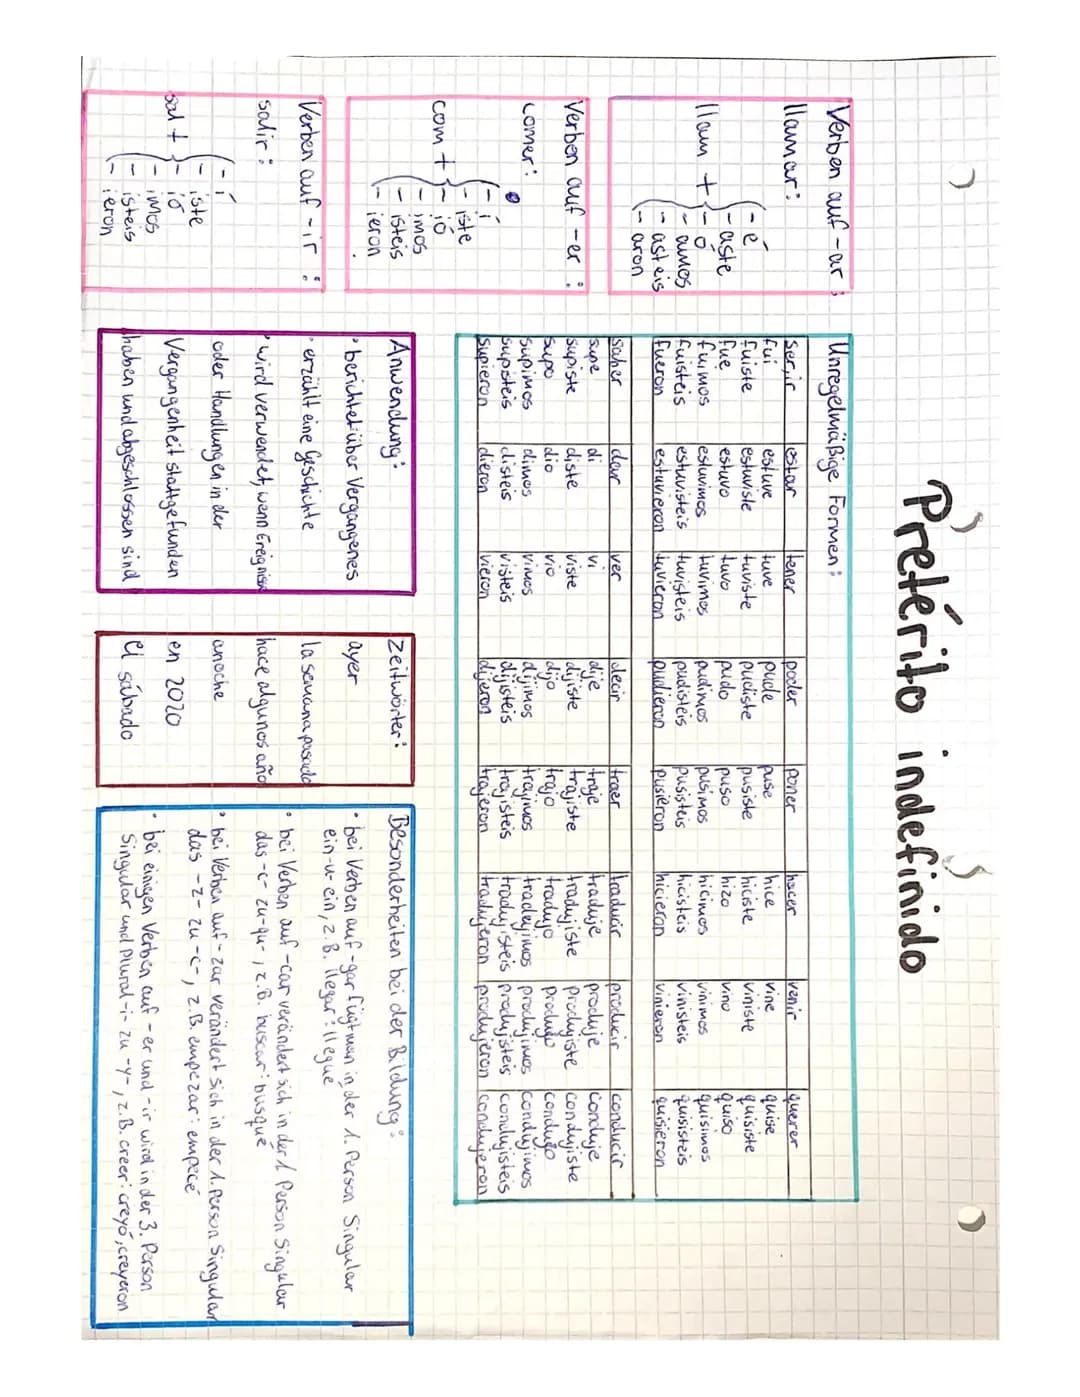 Pretérito indefinido
Verben auf -ar:
llamar:
llam +
- é
- aste
- ó
- amos
- asteis
- aron
Verben auf -er:
comer:
com +
- í
- iste
- ió
- imos
- isteis
- ieron
Verben auf -ir:
salir:
sal +
- í
- iste
- ió
- imos
- isteis
- ieron
Unregelmäßige Formen:
ser, ir estar tener poder poner hacer venir querer
fui estuve tuve pude puse hice vine quise
fuiste estuviste tuviste pudiste pusiste hiciste viniste quisiste
fue estuvo tuvo pudo puso hizo vino quiso
fuimos estuvimos tuvimos pudimos pusimos hicimos vinimos quisimos
fuisteis estuvisteis tuvisteis pudisteis pusisteis hicisteis vinisteis quisisteis
fueron estuvieron tuvieron pudieron pusieron hicieron vinieron quisieron
saber dar ver decir traer traducir producir conducir
supe di vi dije traje traduje produje conduje
supiste diste viste dijiste trajiste tradujiste produjiste condujiste
supo dio vio dijo trajo tradujo produjo condujo
supimos dimos vimos dijimos trajimos tradujimos produjimos condujimos
supisteis disteis visteis dijisteis trajisteis tradujisteis produjisteis condujisteis
supieron dieron vieron dijeron trajeron tradujeron produjeron condujeron
Anwendung:
• berichtet über Vergangenes
• erzählt eine Geschichte
• wird verwendet, wenn Ereignisse
oder Handlungen in der
Vergangenheit stattgefunden
haben und abgeschlossen sind
Zeitwörter:
ayer
la semana pasada
hace algunos año
anoche
en 2020
el sábado
Besonderheiten bei der Bildung:
• bei Verben auf -gar fügt man in der 1. Person Singular
ein -u- ein, z.B. llegar: llegué
• bei Verben auf -car verändert sich in der 1. Person Singular
das -c- zu -qu-, z.B. buscar: busqué
• bei Verben auf -zar verändert sich in der 1. Person Singular
das -z- zu -c-, z.B. empezar: empecé
• bei einigen Verben auf -er und -ir wird in der 3. Person
Singular und Plural -i- zu -y-, z.B. creer: creyó, creyeron